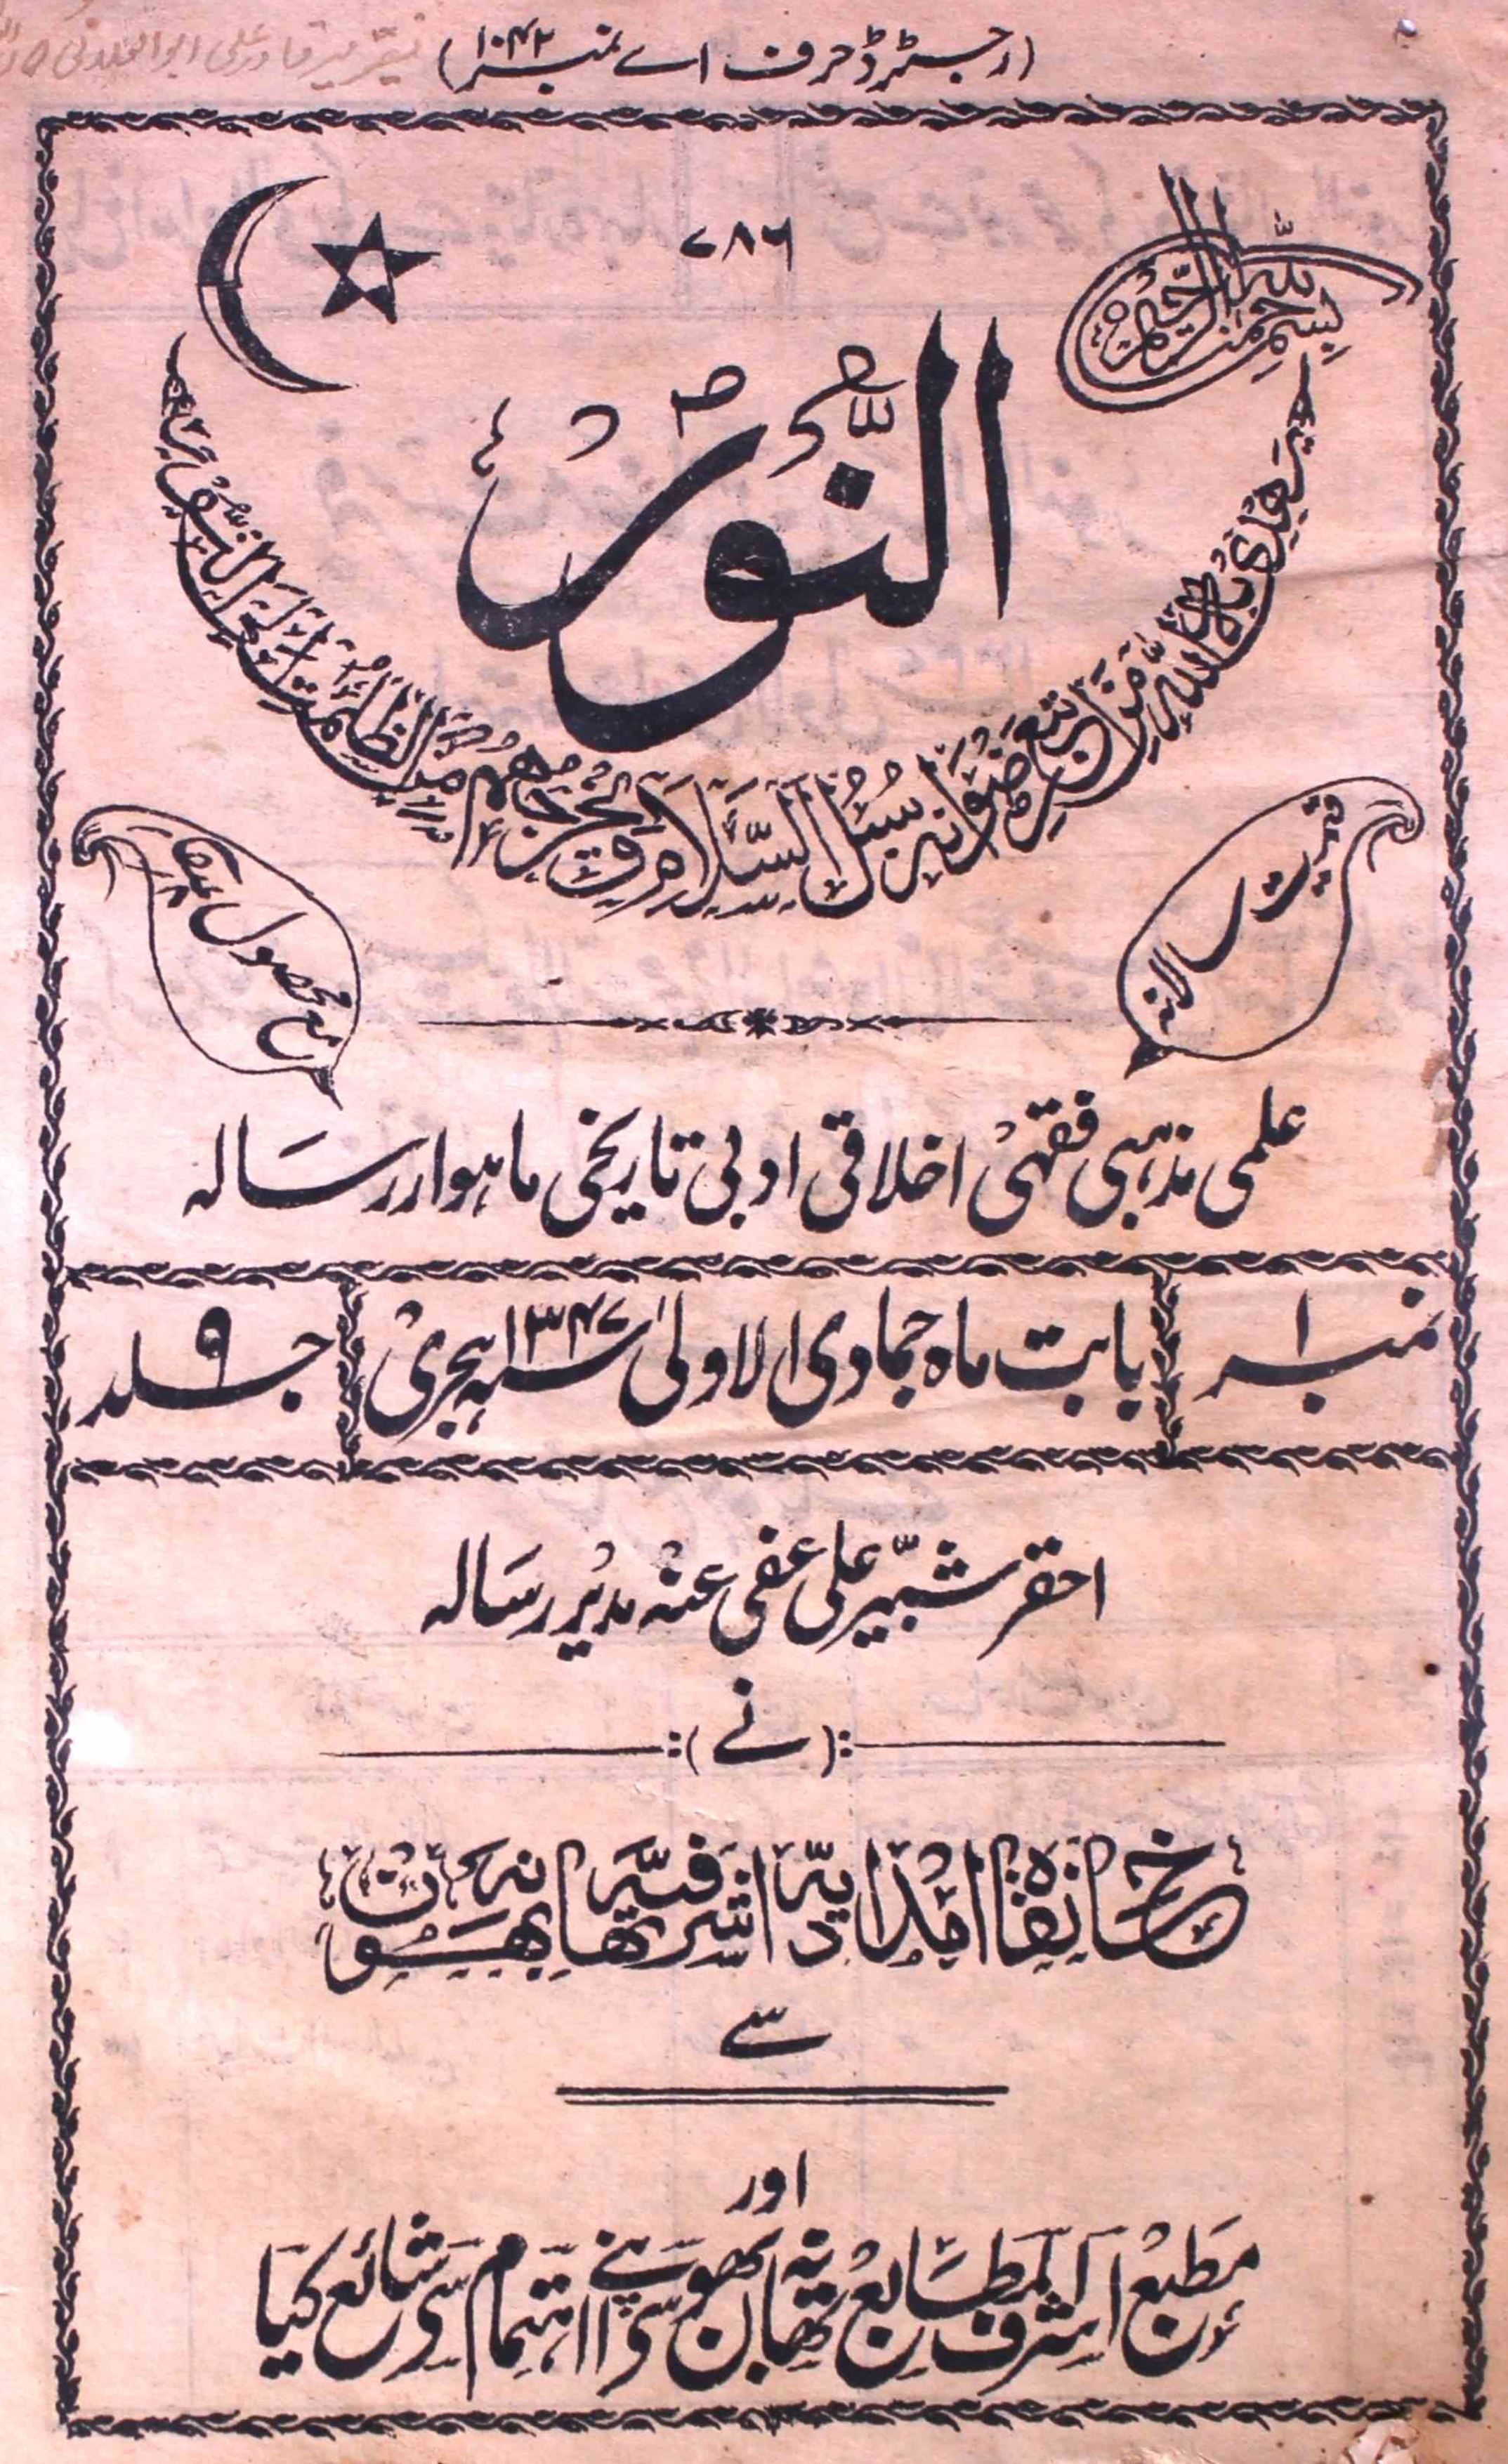 (رجسٹرڈ حرف اے نمبر ۱۰۴۲)
۷۸۶
بسم اللہ الرحمن الرحیم
النُّورُ
یَھْدِیْ بِہِ اللّٰہُ مَنِ اتَّبَعَ رِضْوَانَہٗ سُبُلَ السَّلَامِ وَیُخْرِجُھُمْ مِنَ الظُّلُمٰتِ اِلَی النُّوْرِ
قیمت سالانہ
مع محصول
علمی مذہبی فقہی اخلاقی ادبی تاریخی ماہوار رسالہ
نمبر ۱
بابت ماہ جمادی الاولیٰ ۱۳۴۷ ہجری
جلد ۹
احقر شبّیر علی عفی عنہ مدیر رسالہ
:( نے ):
خانقاہ امدادیہ اشرفیہ تھانہ بھون
سے
اور
مطبع اشرف المطابع تھانہ بھون سے اپنے اہتمام سے شائع کیا